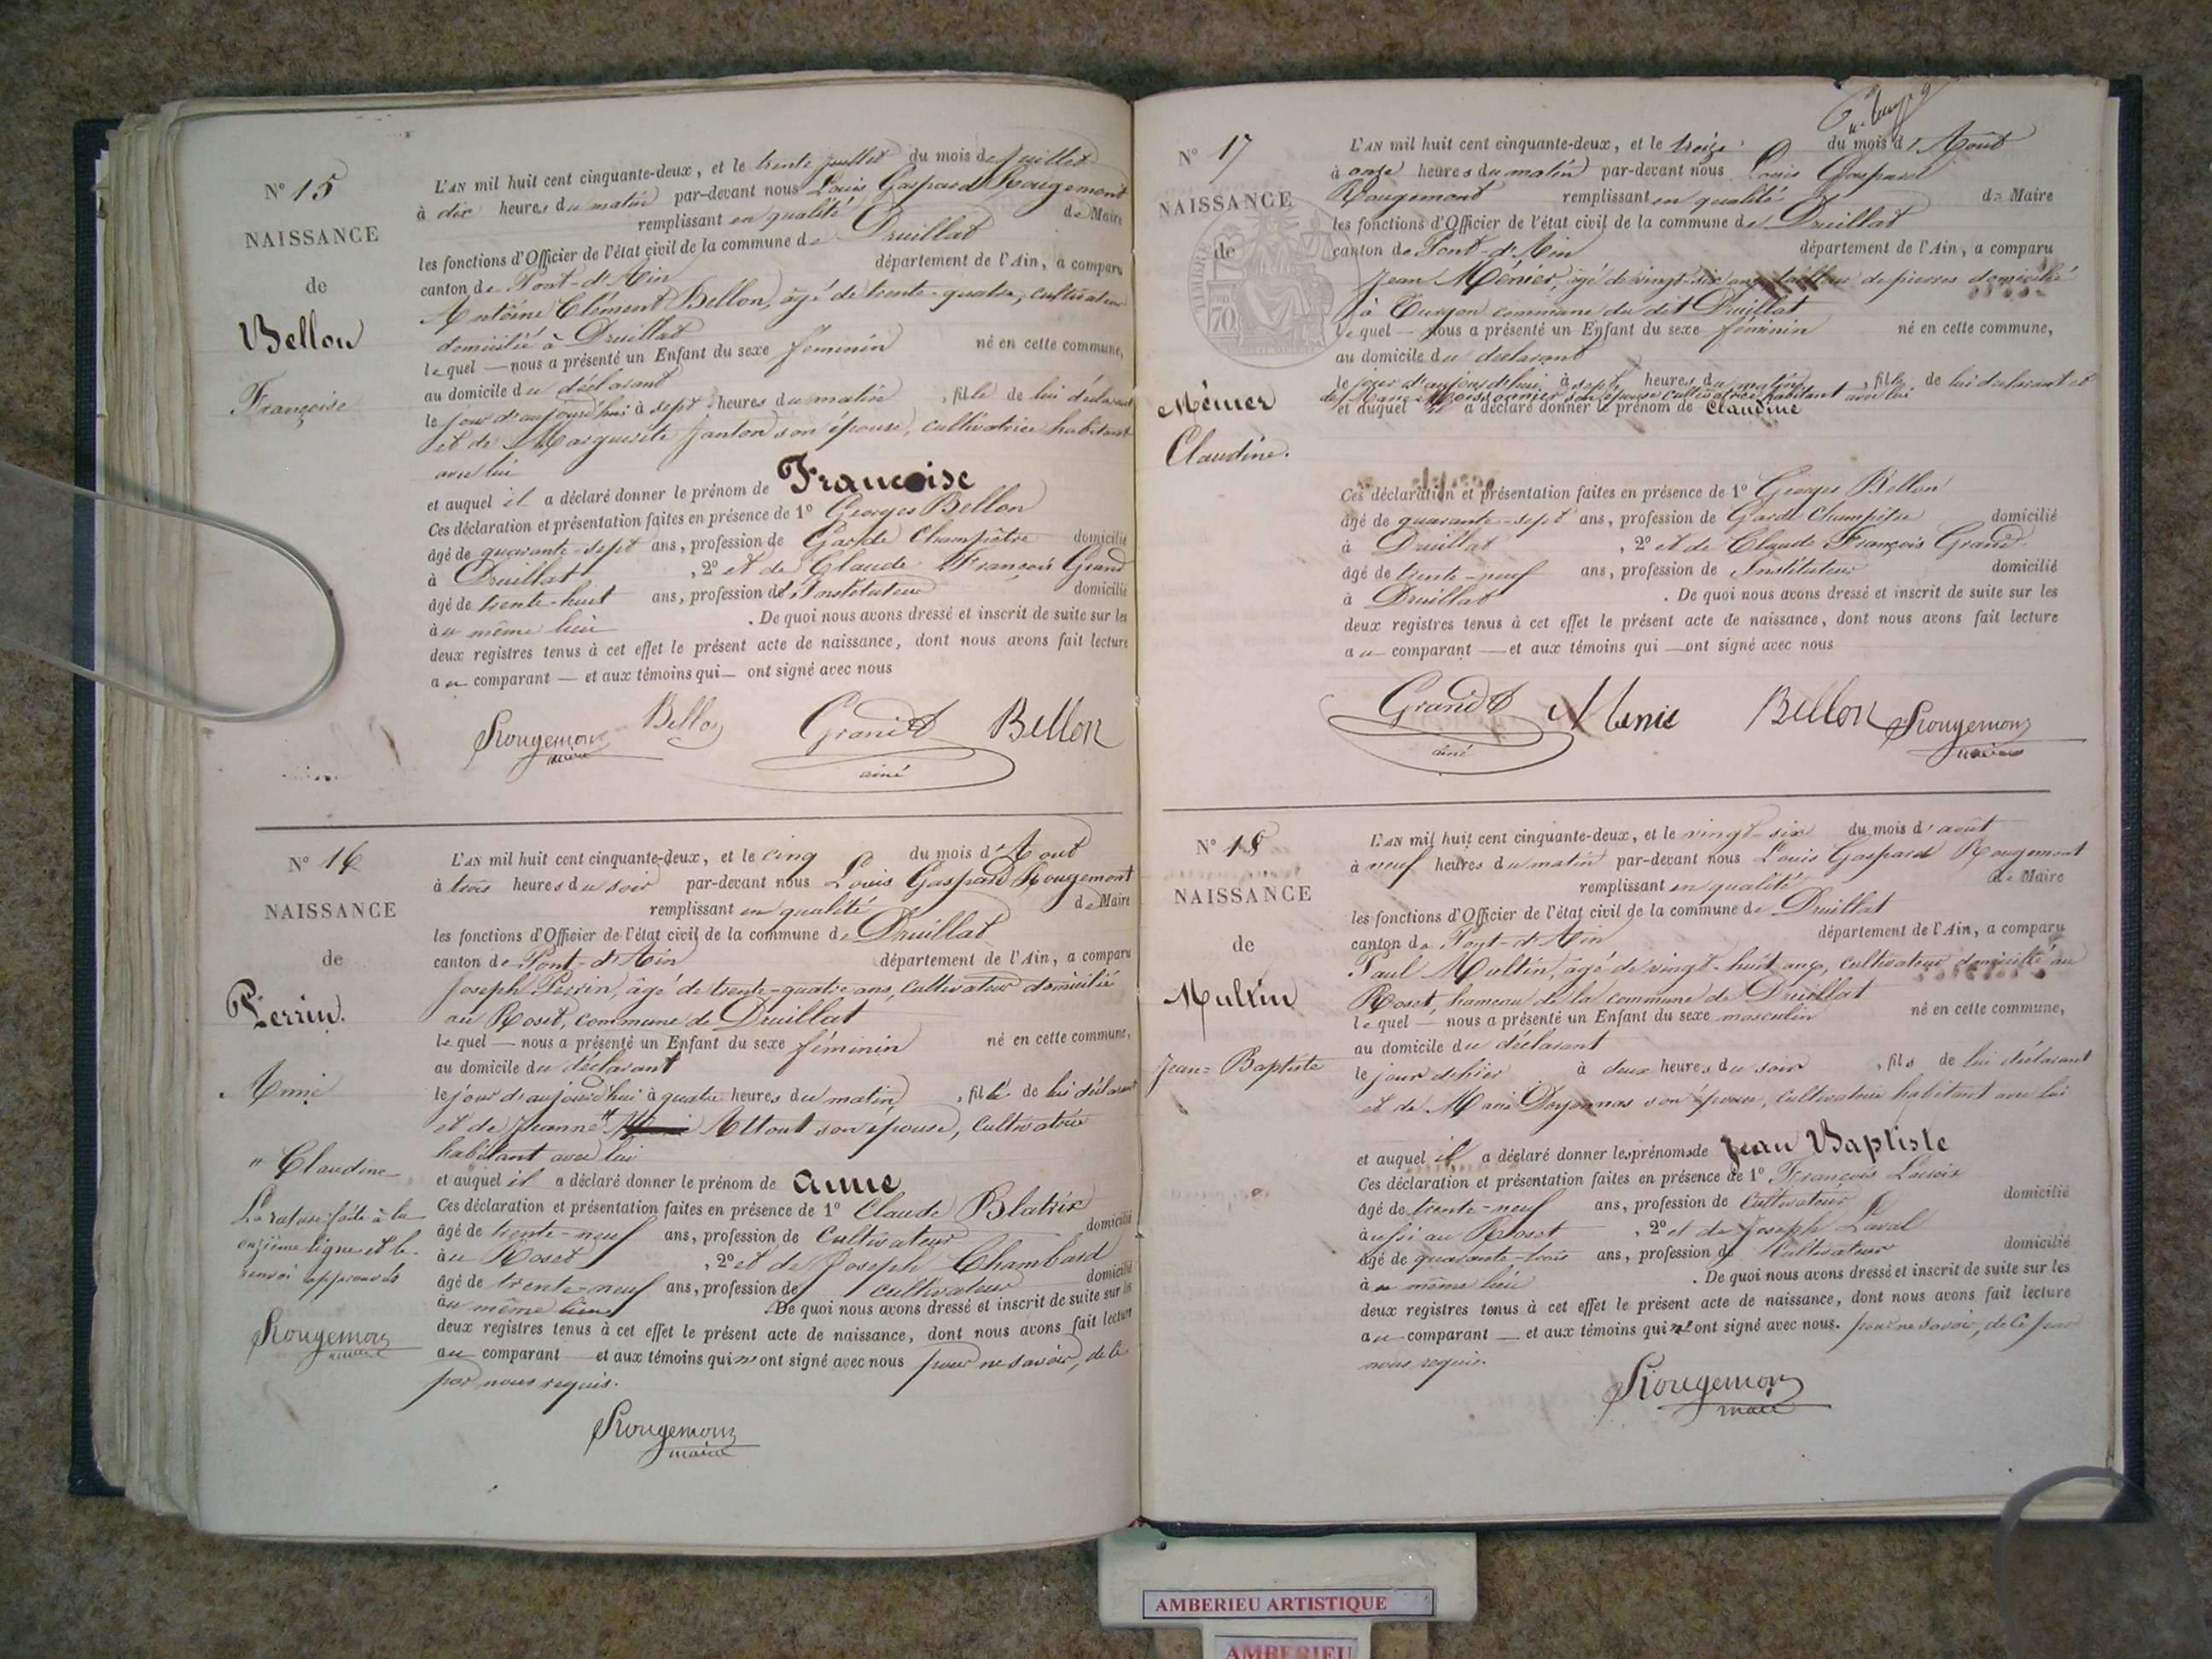 N° 15
NAISSANCE
de
Bellon
Françoise
L'AN mil huit cent cinquante-deux, et le trente juillet du mois de Juillet
à dix heures du matin par-devant nous Louis Gaspard Rougemont
remplissant en qualité de Maire
les fonctions d'Officier de l'état civil de la commune de Druillat
canton de Pont-d'Ain département de l'Ain, a comparu
Antoine Clément Bellon, âgé de trente-quatre, cultivateur
domicilié à Druillat
lequel — nous a présenté un Enfant du sexe féminin né en cette commune,
au domicile du déclarant
le jour d'aujourd'hui à sept heures du matin, fille de lui déclarant
et de Marguerite Janton son épouse, cultivatrice habitant
avec lui
et auquel il a déclaré donner le prénom de Françoise
Ces déclaration et présentation faites en présence de 1° Georges Bellon
âgé de quarante-sept ans, profession de Garde Champêtre domicilié
à Druillat, 2° et de Claude François Grand
âgé de trente-huit ans, profession de Instituteur domicilié
au même lieu. De quoi nous avons dressé et inscrit de suite sur les
deux registres tenus à cet effet le présent acte de naissance, dont nous avons fait lecture
au comparant — et aux témoins qui — ont signé avec nous
Rougemont maire Bellon Grand aîné Bellon
N° 16
NAISSANCE
de
Perrin.
Anne
" Claudine
La rature faite à la
onzième ligne et le
renvoi approuvés
Rougemont
maire
L'AN mil huit cent cinquante-deux, et le cinq du mois d'Aout
à trois heures du soir par-devant nous Louis Gaspard Rougemont
remplissant en qualité de Maire
les fonctions d'Officier de l'état civil de la commune de Druillat
canton de Pont-d'Ain département de l'Ain, a comparu
Joseph Perrin, âgé de trente-quatre ans, cultivateur domicilié
au Roset, commune de Druillat
lequel — nous a présenté un Enfant du sexe féminin né en cette commune,
au domicile du déclarant
le jour d'aujourd'hui à quatre heures du matin, fille de lui déclarant
et de Jeanne " Altout son épouse, cultivatrice
habitant avec lui
et auquel il a déclaré donner le prénom de anne
Ces déclaration et présentation faites en présence de 1° Claude Blatrix
âgé de trente-neuf ans, profession de Cultivateur domicilié
au Roset, 2° et de Joseph Chambard
âgé de trente-neuf ans, profession de cultivateur domicilié
au même lieu. De quoi nous avons dressé et inscrit de suite sur les
deux registres tenus à cet effet le présent acte de naissance, dont nous avons fait lecture
au comparant — et aux témoins qui n'ont signé avec nous pour ne savoir, de ce
par nous requis.
Rougemont
maire
N° 17
NAISSANCE
de
TIMBRE
70
Ménier
Claudine.
L'AN mil huit cent cinquante-deux, et le treize du mois d'Aout
à onze heures du matin par-devant nous Louis Gaspard
Rougemont remplissant en qualité de Maire
les fonctions d'Officier de l'état civil de la commune de Druillat
canton de Pont-d'Ain département de l'Ain, a comparu
Jean Ménier, âgé de vingt-six ans, tailleur de pierres domicilié
à Turgon commune du dit Druillat
lequel — nous a présenté un Enfant du sexe féminin né en cette commune,
au domicile du déclarant
le jour d'aujourd'hui à sept heures du matin, fille de lui déclarant et
de Marie Moissonnier son épouse cultivatrice habitant avec lui
et auquel il a déclaré donner le prénom de Claudine
Ces déclaration et présentation faites en présence de 1° Georges Bellon
âgé de quarante-sept ans, profession de Garde Champêtre domicilié
à Druillat, 2° et de Claude François Grand
âgé de trente-neuf ans, profession de Instituteur domicilié
à Druillat. De quoi nous avons dressé et inscrit de suite sur les
deux registres tenus à cet effet le présent acte de naissance, dont nous avons fait lecture
au comparant — et aux témoins qui — ont signé avec nous
Grand aîné Menie Bellon Rougemont maire
N° 18
NAISSANCE
de
Multin
Jean-Baptiste
L'AN mil huit cent cinquante-deux, et le vingt-six du mois d'août
à neuf heures du matin par-devant nous Louis Gaspard Rougemont
remplissant en qualité de Maire
les fonctions d'Officier de l'état civil de la commune de Druillat
canton de Pont-d'Ain département de l'Ain, a comparu
Paul Multin, âgé de vingt-huit ans, cultivateur domicilié au
Roset, hameau de la commune de Druillat
lequel — nous a présenté un Enfant du sexe masculin né en cette commune,
au domicile du déclarant
le jour d'hier à deux heures du soir, fils de lui déclarant
et de Marie Doyonnas son épouse, cultivatrice habitant avec lui
et auquel il a déclaré donner les prénoms de Jean Baptiste
Ces déclaration et présentation faites en présence de 1° François Lacroix
âgé de trente-neuf ans, profession de Cultivateur domicilié
aussi au Roset, 2° et de Joseph Laval
âgé de quarante-trois ans, profession de Cultivateur domicilié
au même lieu. De quoi nous avons dressé et inscrit de suite sur les
deux registres tenus à cet effet le présent acte de naissance, dont nous avons fait lecture
au comparant — et aux témoins qui n'ont signé avec nous. pour ne savoir, de ce par
nous requis.
Rougemont
maire
AMBERIEU ARTISTIQUE
AMBERIEU